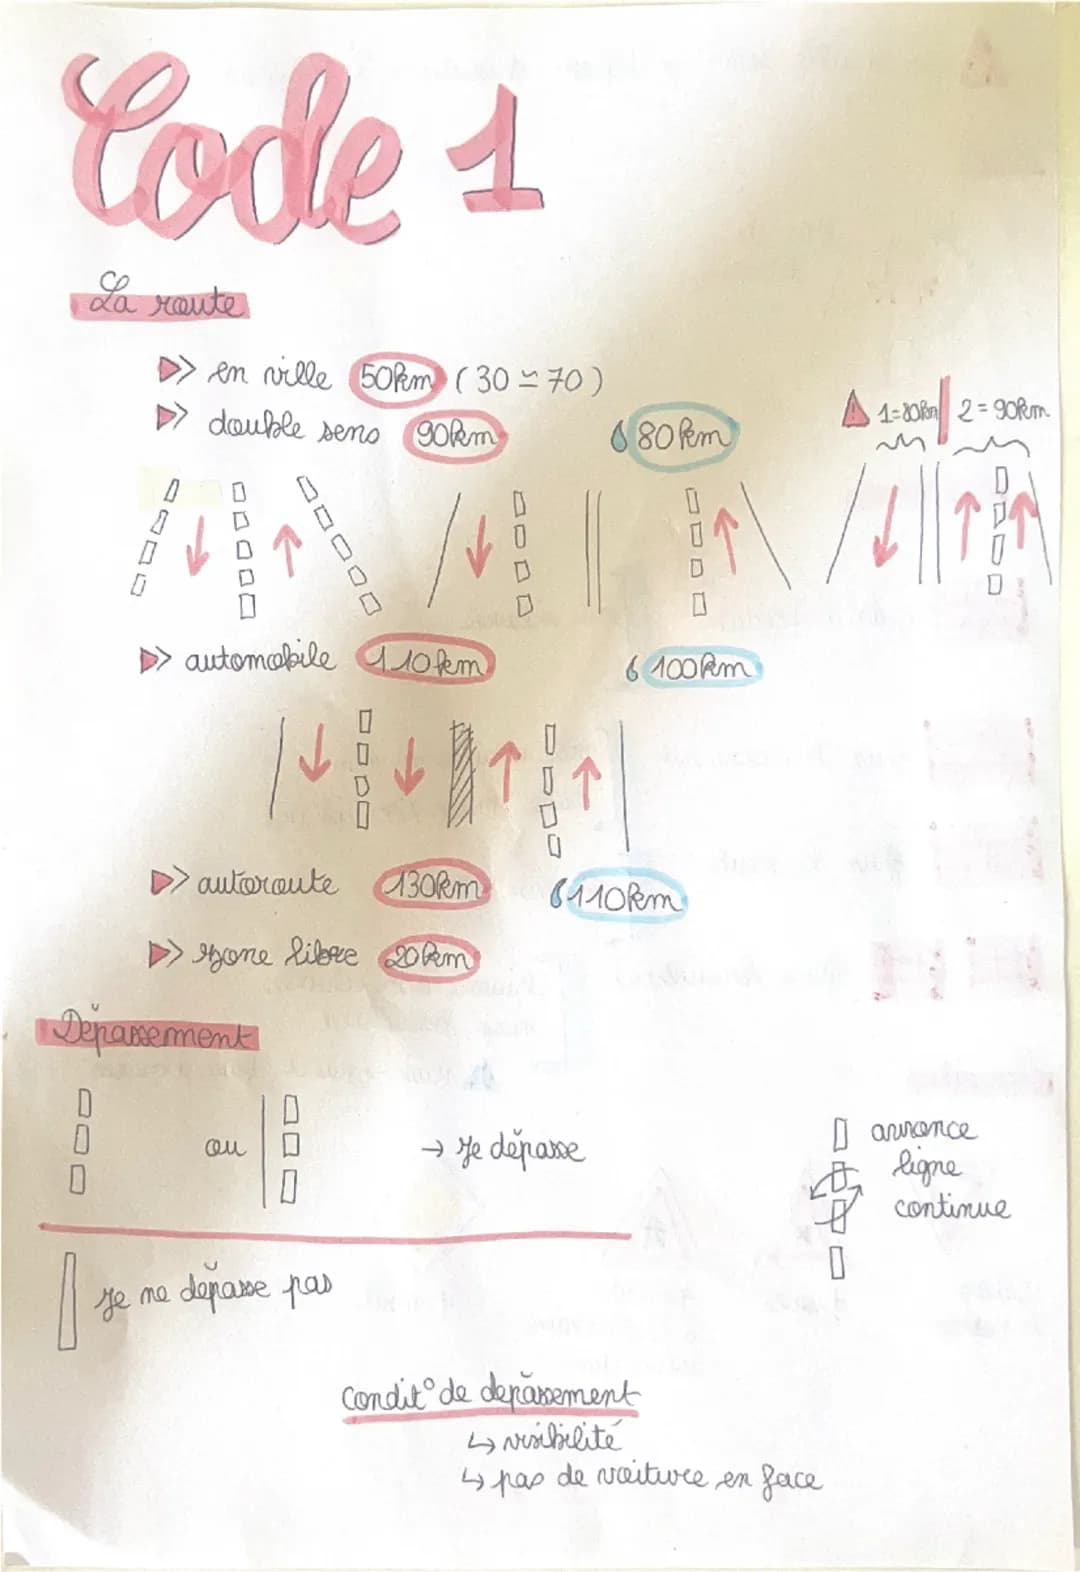 Code 1
La route
en ville 50km (30 ≃ 70)
double sens 90km 80km
1=80km 2=90km
automobile 110km 100km
autoroute 130km 110km
zone libre 20km
Dépassement
ou → Je dépasse
annonce
ligne
continue
Je ne dépasse pas
condit° de depassement
↳ visibilité
↳ pas de voiture en face